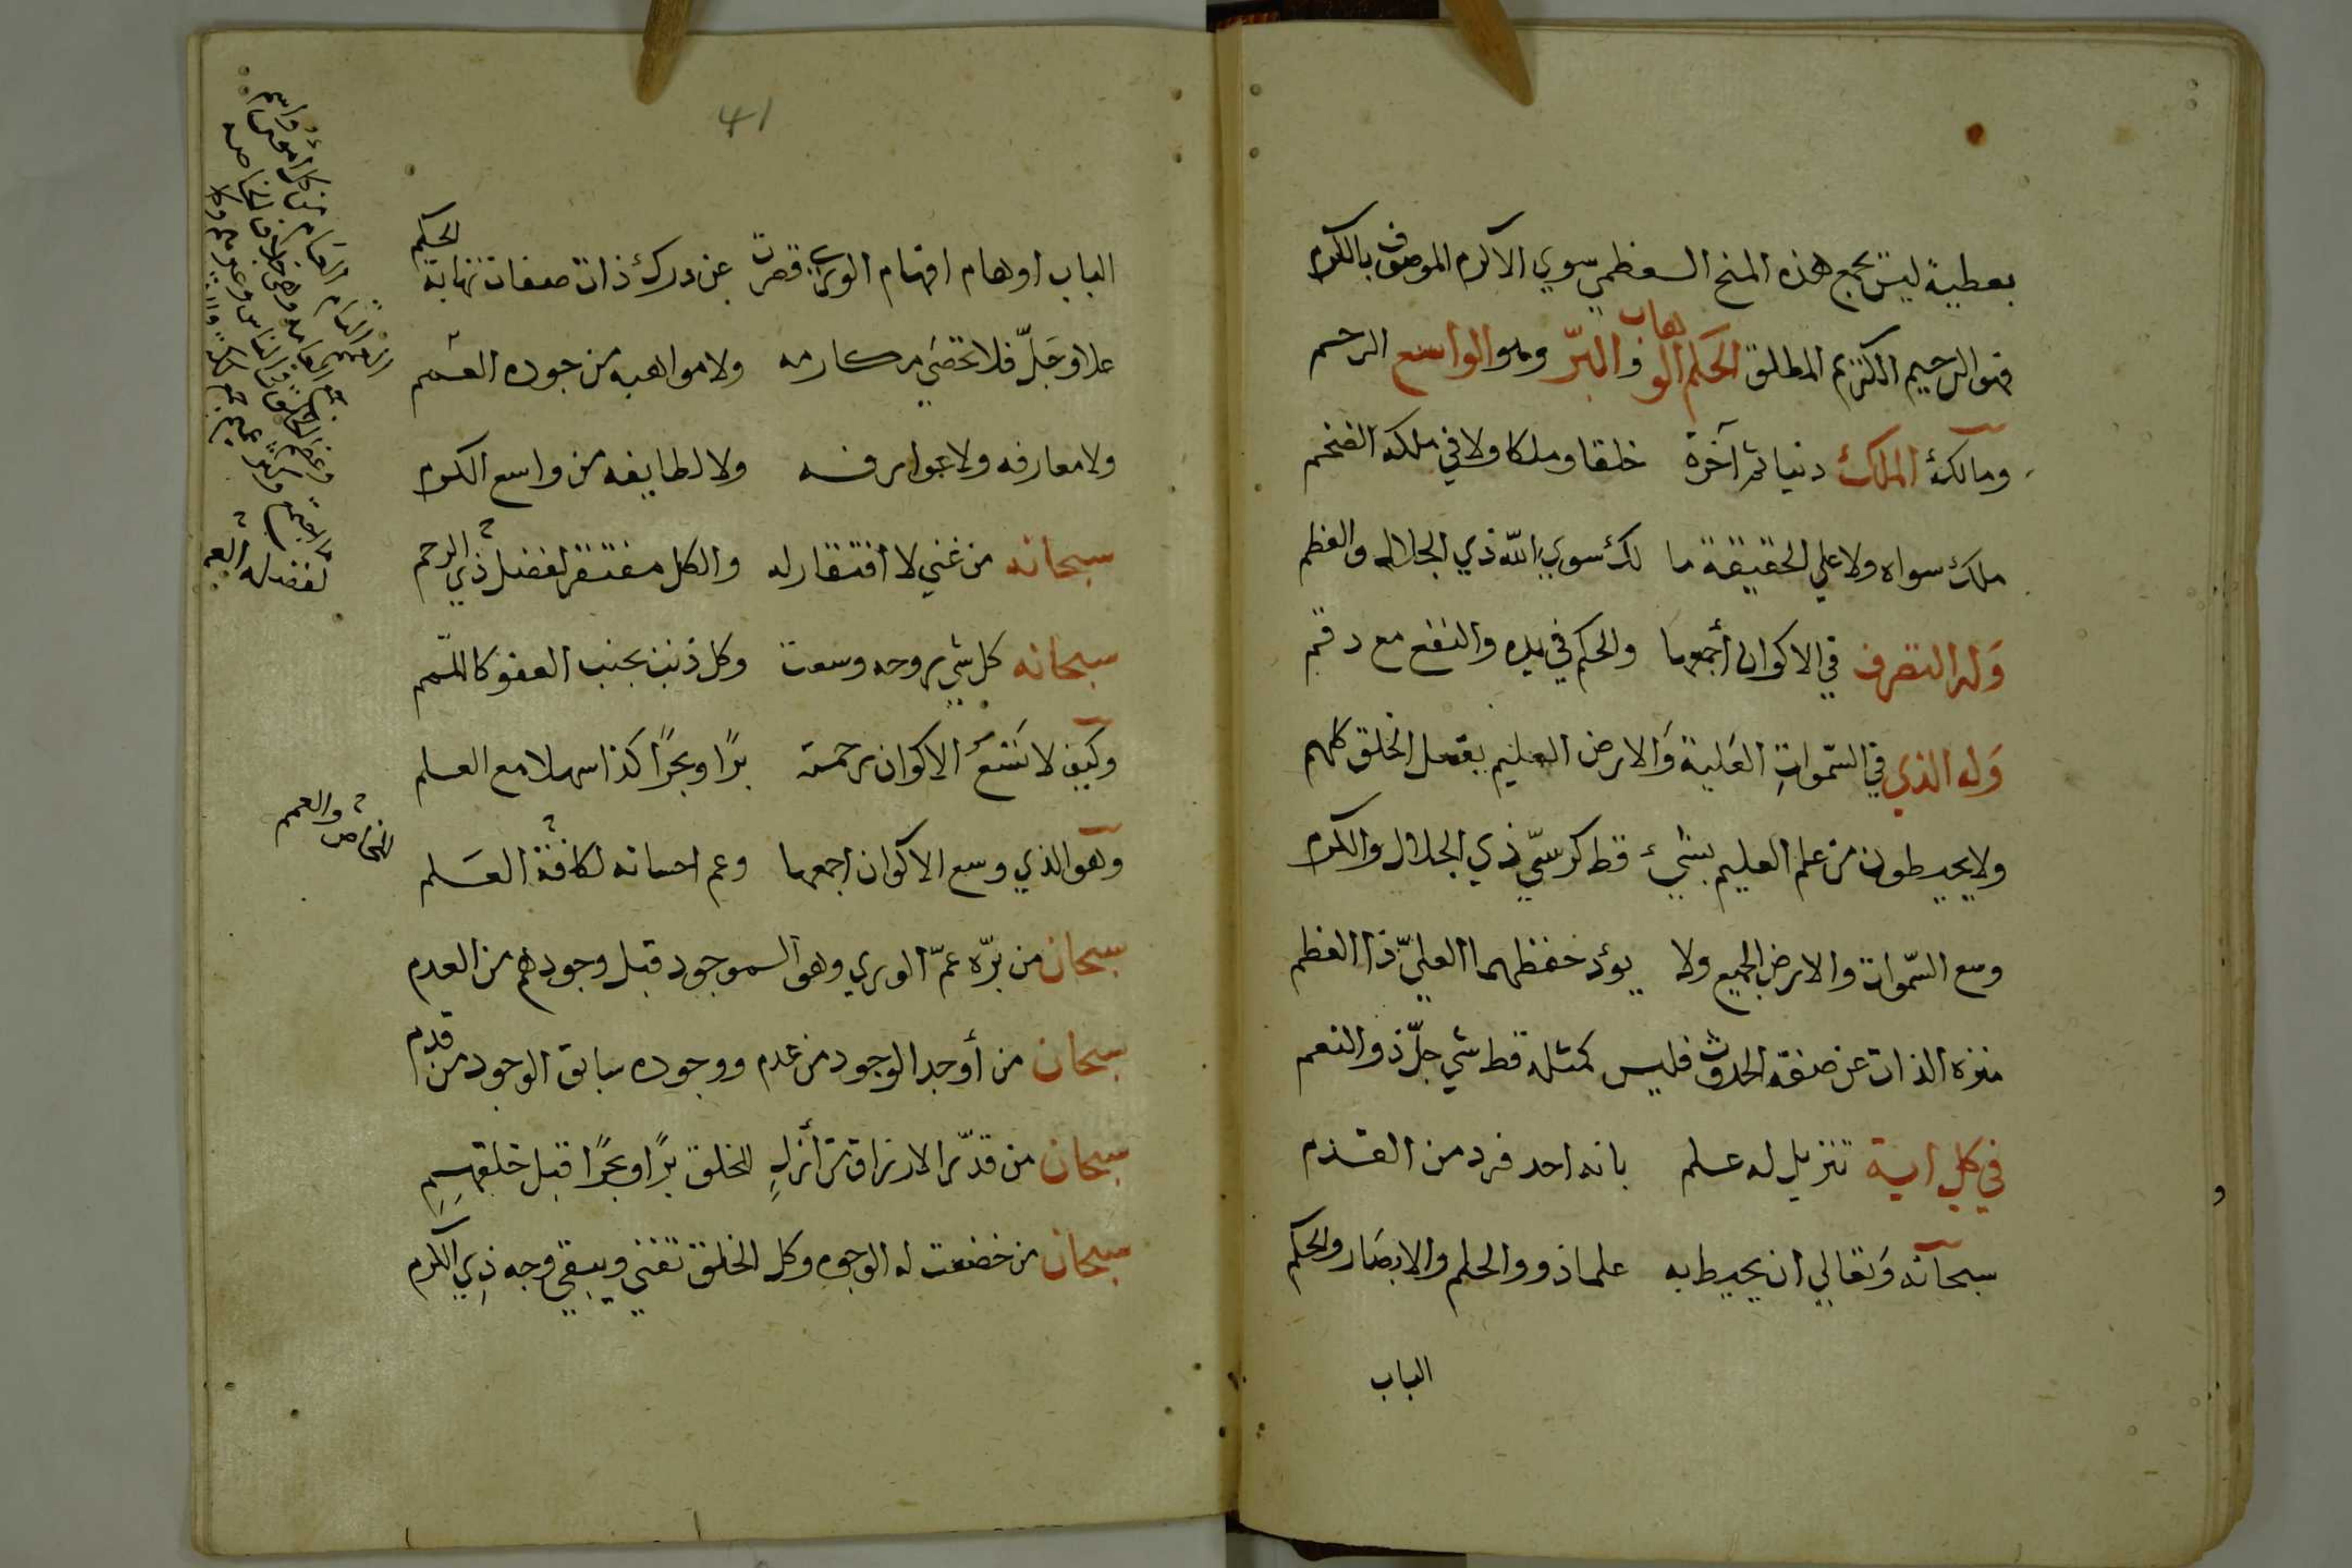 بعطية ليس يجمع هذه المنح العظمي سوي الاكرم الموصوف بالكرم
فهو الرحيم الكريم المطلق الحكم الوهاب والبرّ وهو الواسع الرحم
ومالك الملك دنيا ثم آخرة خلقا وملكا ولا في ملكه الضخم
ملك سواه ولا علي الحقيقة ما لك سوي الله ذي الجلال والعظم
وله التصرف في الاكوان أجمعها والحكم في يده والنفع مع دقم
وله الذي في السّموات العَلية وَالارض العليم بفعل الخلق كلهم
ولا يحيطون من علم العليم بشيء قط كرسيّ ذي الجلال والكرم
وسع السّموات والارض الجميع ولا يؤد حفظهما العليّ ذا العظم
منزه الذات عن صفة الحدوث فليس كمثله قط شي جلّ ذو النعم
في كل اية تنزيل له علم بانه احد فرد من القدم
سبحآنه وَتعالي ان يحيط به علما ذوو الحلم والابصَار والحكم
الباب
41
الباب اوهام افهام الوري قصرت عن درك ذات صفات نهاية الحكم
علا وجَلّ فلا تحصَي مكارمه ولا مواهبه من جوده العمم
ولا معارفه ولا عوارفه ولا لطايفه من واسع الكرم
سبحانه من غني لا افتقار له والكل مفتقر لفضل ذي الرحم
سبحانه كل شي روحه وسعت وكل ذنب بجنب العفو كاللّمم
وكيف لا تسَع الاكوان رحمته برّا وبحرًا كذا سهلا مع العلم
وهو الذي وسع الاكوان اجمعها وعم احسانه لكافة العَلم
سبحان من برّه عمّ الوري وهو الموجود قبل وجودهم من العدم
سبحان من أوجد الوجود من عدم ووجوده سابق الوجود من قدم
سبحان من قدّر الارزاق من أزلٍ للخلق برًا وبحرًا قبل خلقهم
سبحان من خضعت له الوجوه وكل الخلق تفني ويبقي وجه ذي الكرم
للخاص والعمم
لفضله العمم